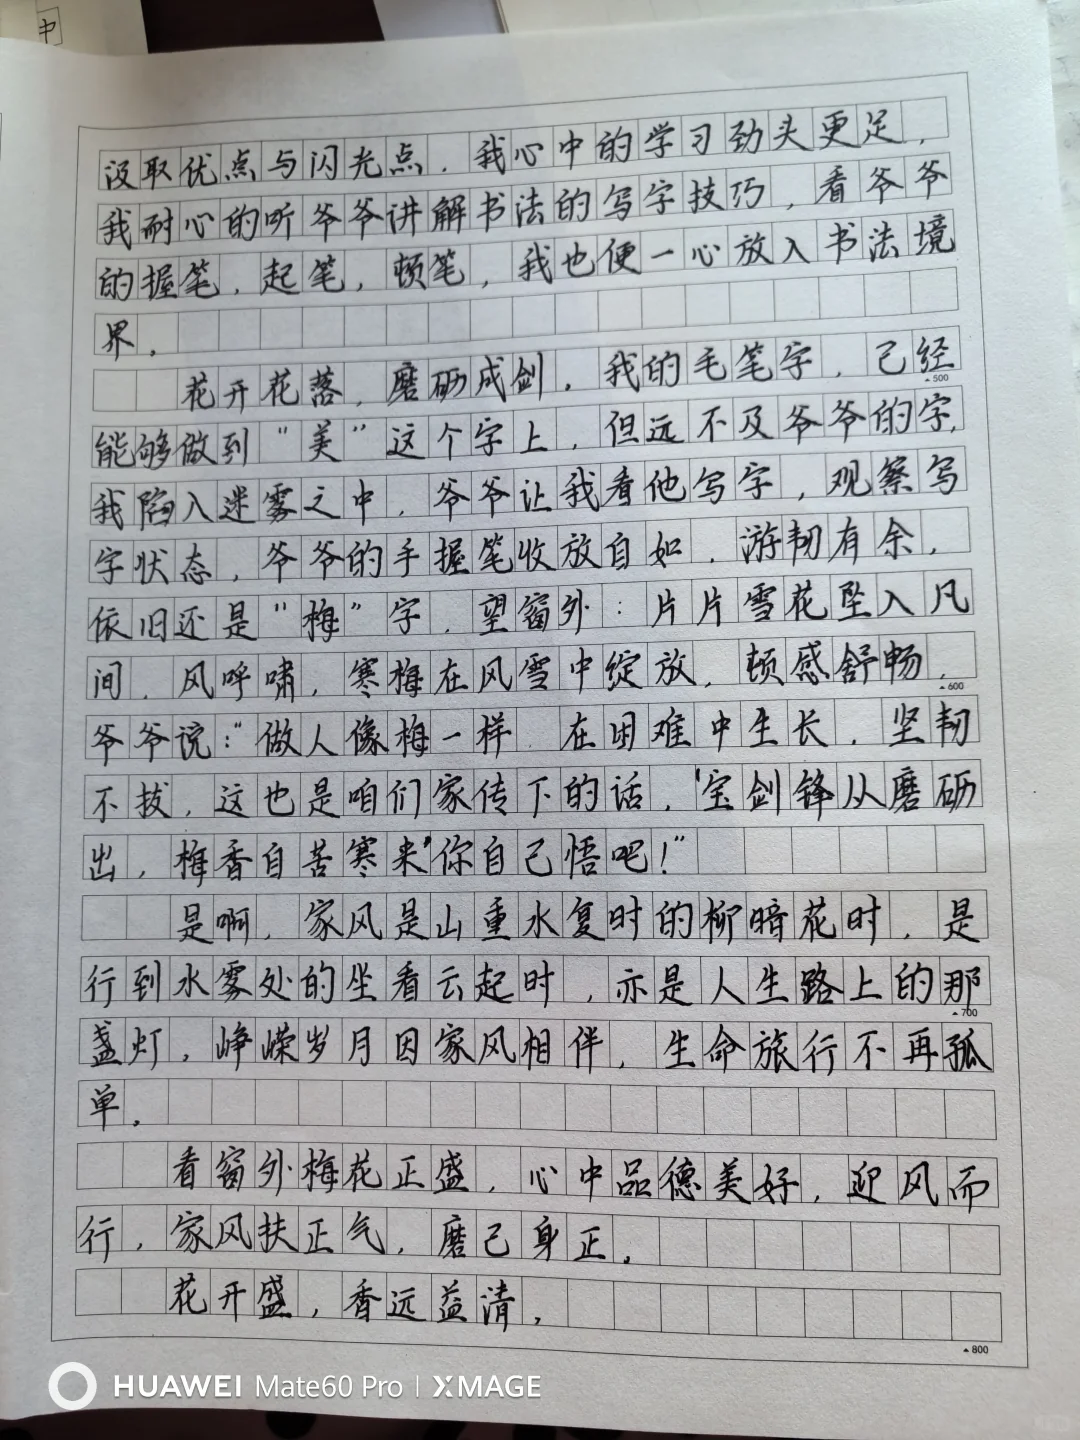 中
汲取优点与闪光点，我心中的学习劲头更足，
我耐心的听爷爷讲解书法的写字技巧，看爷爷
的握笔，起笔，顿笔，我也便一心放入书法境
界。
花开花落，磨砺成剑，我的毛笔字，己经
▲500
能够做到“美”这个字上，但远不及爷爷的字，
我陷入迷雾之中，爷爷让我看他写字，观察写
字状态，爷爷的手握笔收放自如，游韧有余，
依旧还是“梅”字，望窗外：片片雪花坠入凡
间，风呼啸，寒梅在风雪中绽放，顿感舒畅，
▲600
爷爷说：“做人像梅一样，在困难中生长，坚韧
不拔，这也是咱们家传下的话，‘宝剑锋从磨砺
出，梅香自苦寒来’你自己悟吧！”
是啊，家风是山重水复时的柳暗花时，是
行到水雾处的坐看云起时，亦是人生路上的那
▲700
盏灯，峥嵘岁月因家风相伴，生命旅行不再孤
单。
看窗外梅花正盛，心中品德美好，迎风而
行，家风扶正气，磨己身正。
花开盛，香远益清。
▲800
HUAWEI Mate60 Pro | XMAGE